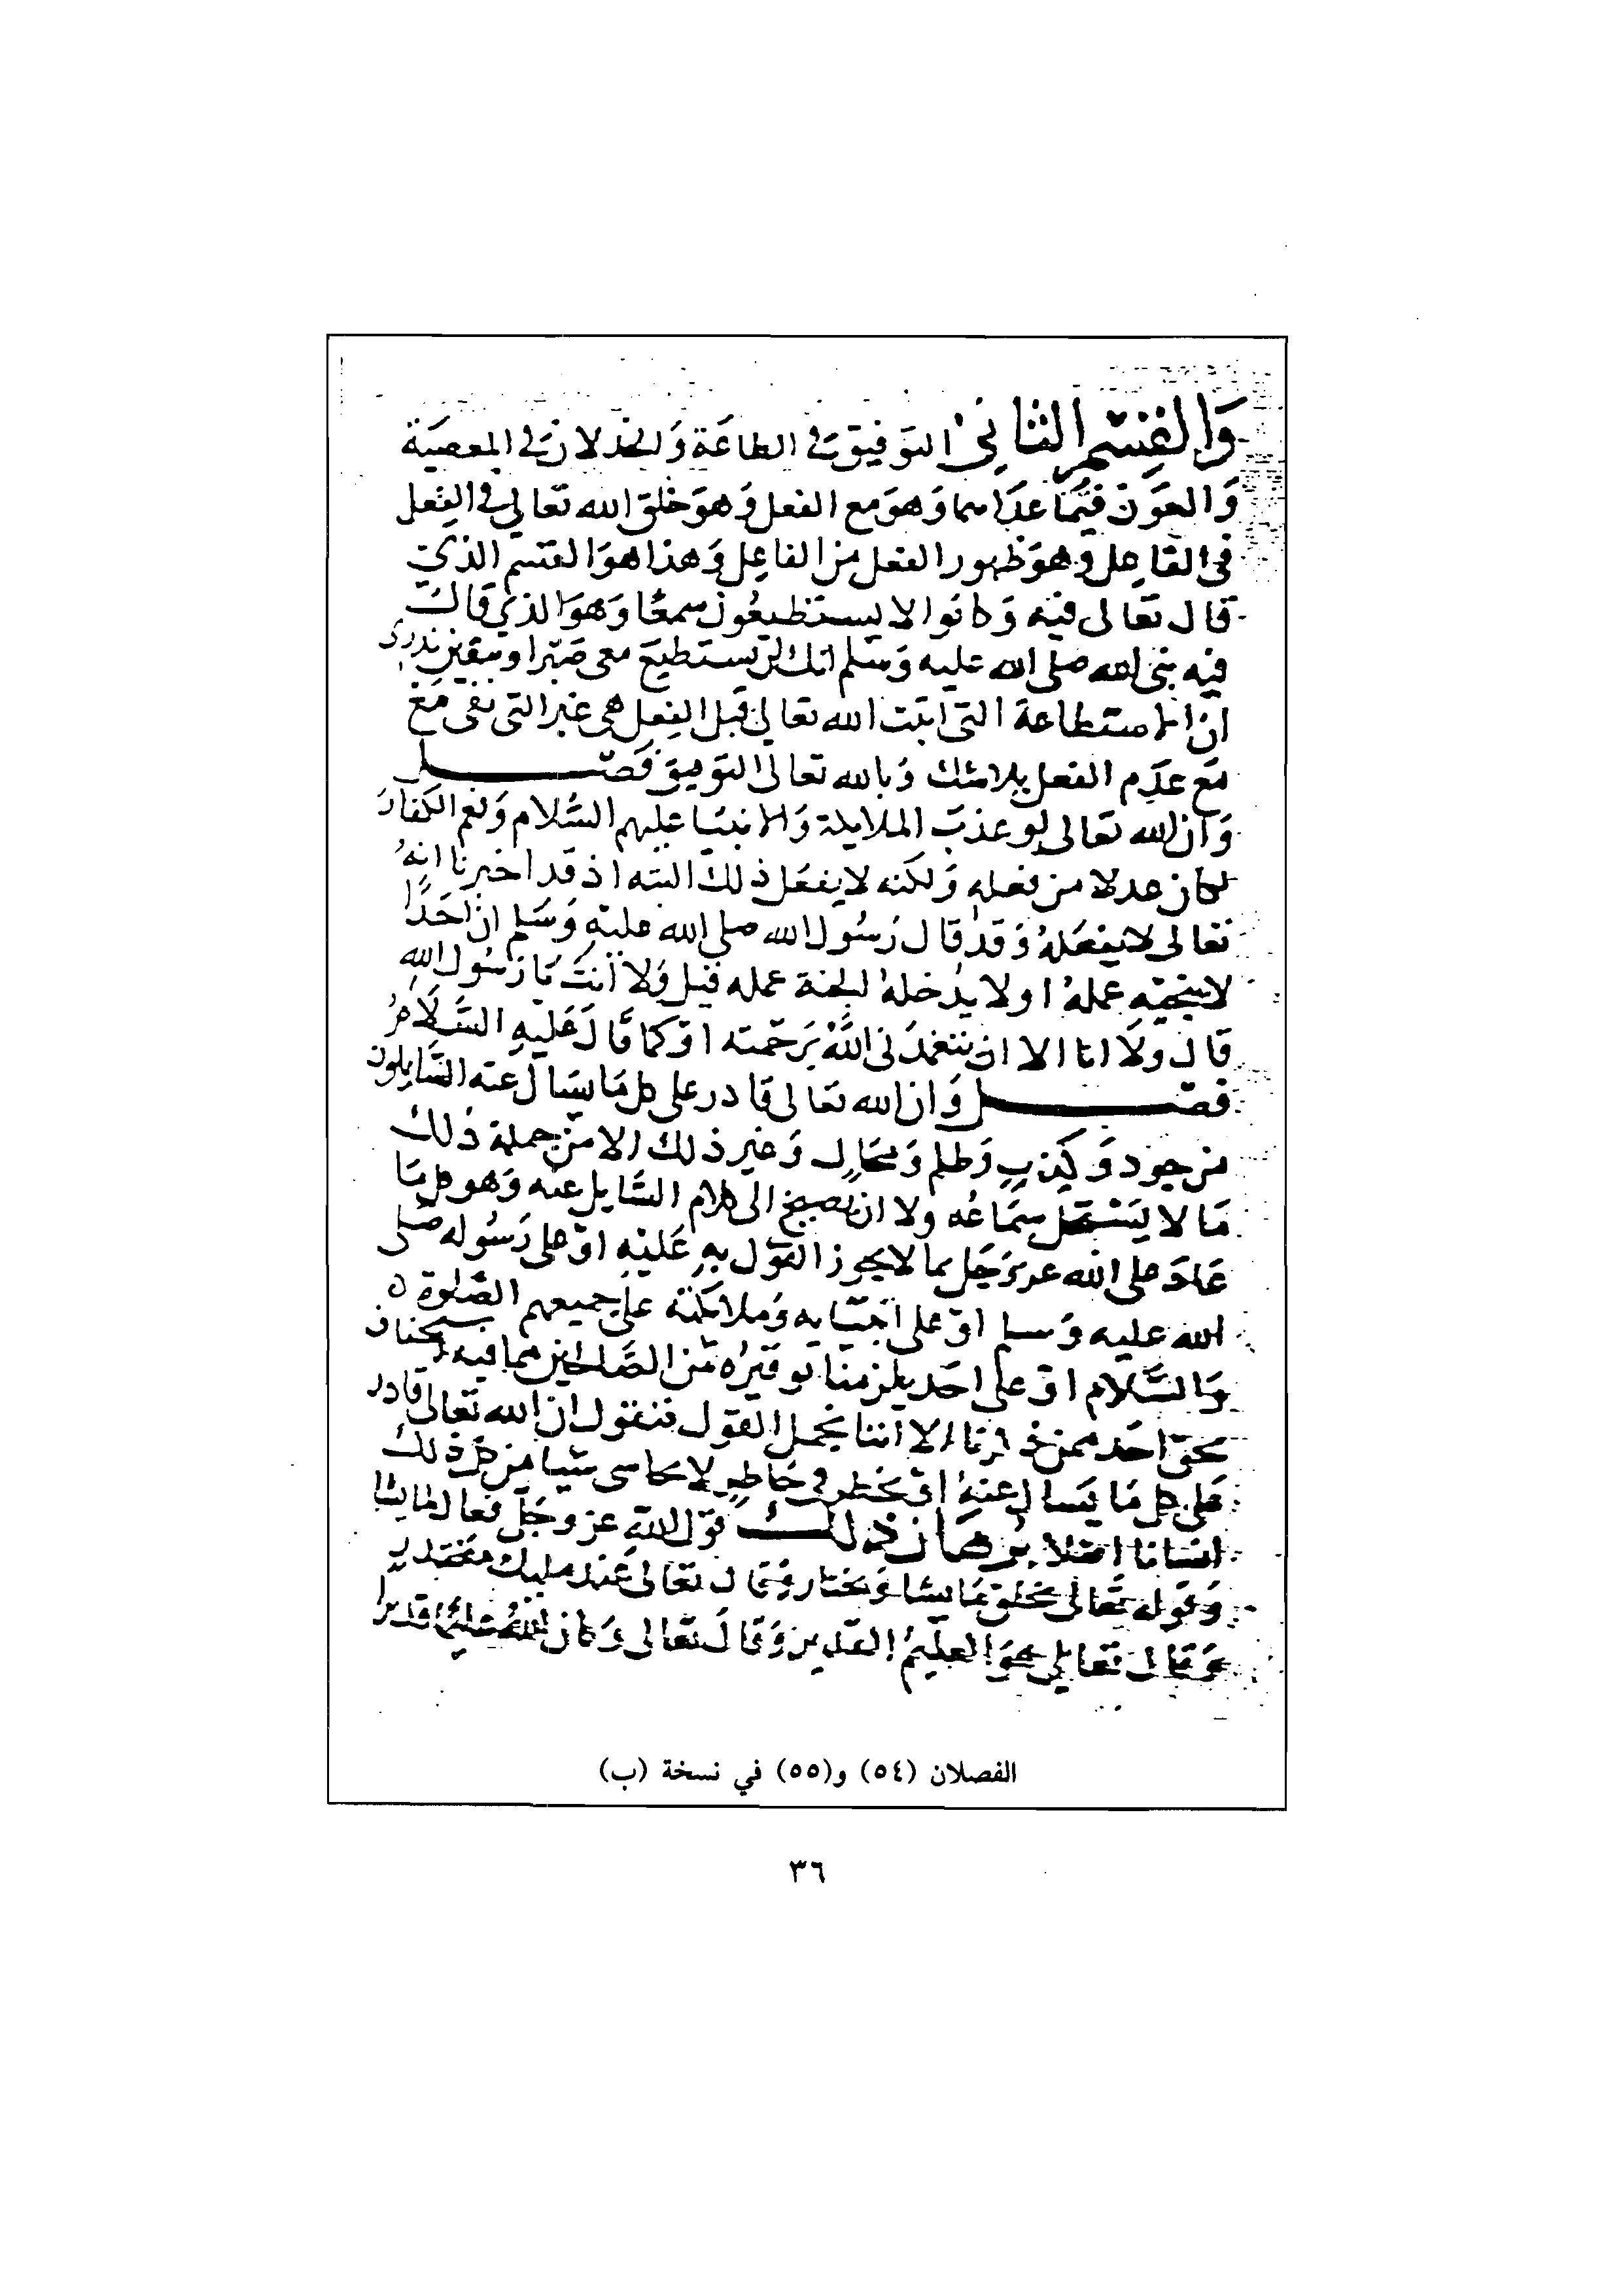 وَالقِسْمِ الثَّانِي التَوفيق في الطاعَة وَالخذلان في المعصيَة
وَالعَوَن فيَما عدَا هما وَهوَ مع الفعل وَهوَ خلق الله تعالى في الفِعل
في الفاعِل وهوَ ظهور الفعل من الفاعِل وَهذا هوَ القسم الذي
قال تعَالى فيه وَكانوا لا يستطيعُون سمعًا وَهوَ الذي قال
فيه نبى الله صلى الله عليه وَسَلم انك لن تستطيعَ معى صَبْرا وبيقين ندرى
ان الاستطاعة التى اثبت الله تعالى قبل الفِعل هى غير التى نفى مَعْ
مَع عدَمِ الفعل بلا شك وَبالله تعالى التوفيق فَصْل
وَان الله تعَالى لو عذبَ الملايكة وَالانبيَا عليهم السَّلام وَنعم الكفار
لكان عدلا من فعله وَلكنه لا يفعَل ذلك البته اذ قد اخبرنا انهُ
تعَالى لا يفعَلهُ وَقد قال رَسُول الله صلى الله عليْهِ وَسَلم ان احَدًا
لا ينجيه عملهُ او لا يدْخلهُ الجنة عمله قيل وَلا انتَ يَا رَسُول اللهِ
قال ولَا انا الا ان يتغمدَنى اللَّهُ بَرَحْمته اوْ كما قَالَ عَليْهِ السَّلَامُ
فصْل وَان الله تعَالى قادر على كل مَا يسَال عنه السَّايلون
من جود وَكَذِبٍ وَظلم وَمحَالٍ وَغير ذلك الا من جملة ذلك
مَا لا يَسْتحل سمَاعُه ولا ان نُصيخ الى كلام السَّايل عنه وَهو كل مَا
عَاد على الله عز وَجَل بما لا يجوز القوْل بهِ عَليْهِ اوْ على رَسُوله صَلى
الله عليه وَسلم اوْ على انبيَايه وَملايكته على جميعهم الصَّلوة
وَالسَّلام اوْ على احَد يلزمنا توقيرُه مِّن الصَّالحين مما فيه استخفاف
بحق احَد ممن ذكرنا الا اننا نجمل القوْل فنقول ان الله تعَالى قادر
عَلى كل مَا يَسال عنهُ اوْ يخطر في خاطِر لا نحاشى شيا من كل ذلك
اصلا بُرهَان ذلك قوْل اللهِ عز وَجَلَّ فعال لما يشا
وَقوله تعَالى يخلق مَا يشا وَيختار وَقال تعَالى عندَ مليك مقتدرٍ
وَقال تعَالى هوَ العلِيمُ القدير وَقالَ تعَالى وَكان اللهُ عليمًا قديرا
الفصلان (٥٤) و(٥٥) في نسخة (ب)
٣٦